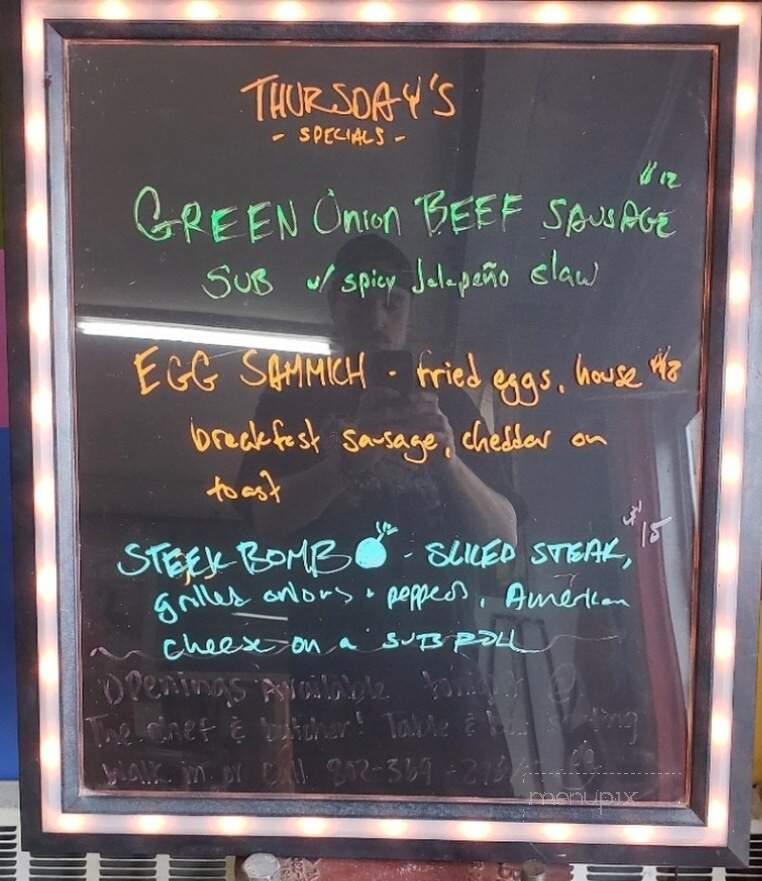 THURSDAY'S
- SPECIALS -
$12
GREEN Onion BEEF SAUSAGE
SUB w/ spicy Jalapeño slaw
EGG SAMMICH - fried eggs, house $8
breakfast sausage, cheddar on
toast
$15
STEEK BOMB - SLICED STEAK,
grilled onions + peppers, American
cheese on a SUB ROLL
Openings Available tonight @
The chef & butcher! Table & bar seating
Walk in or call 802-369
menupix